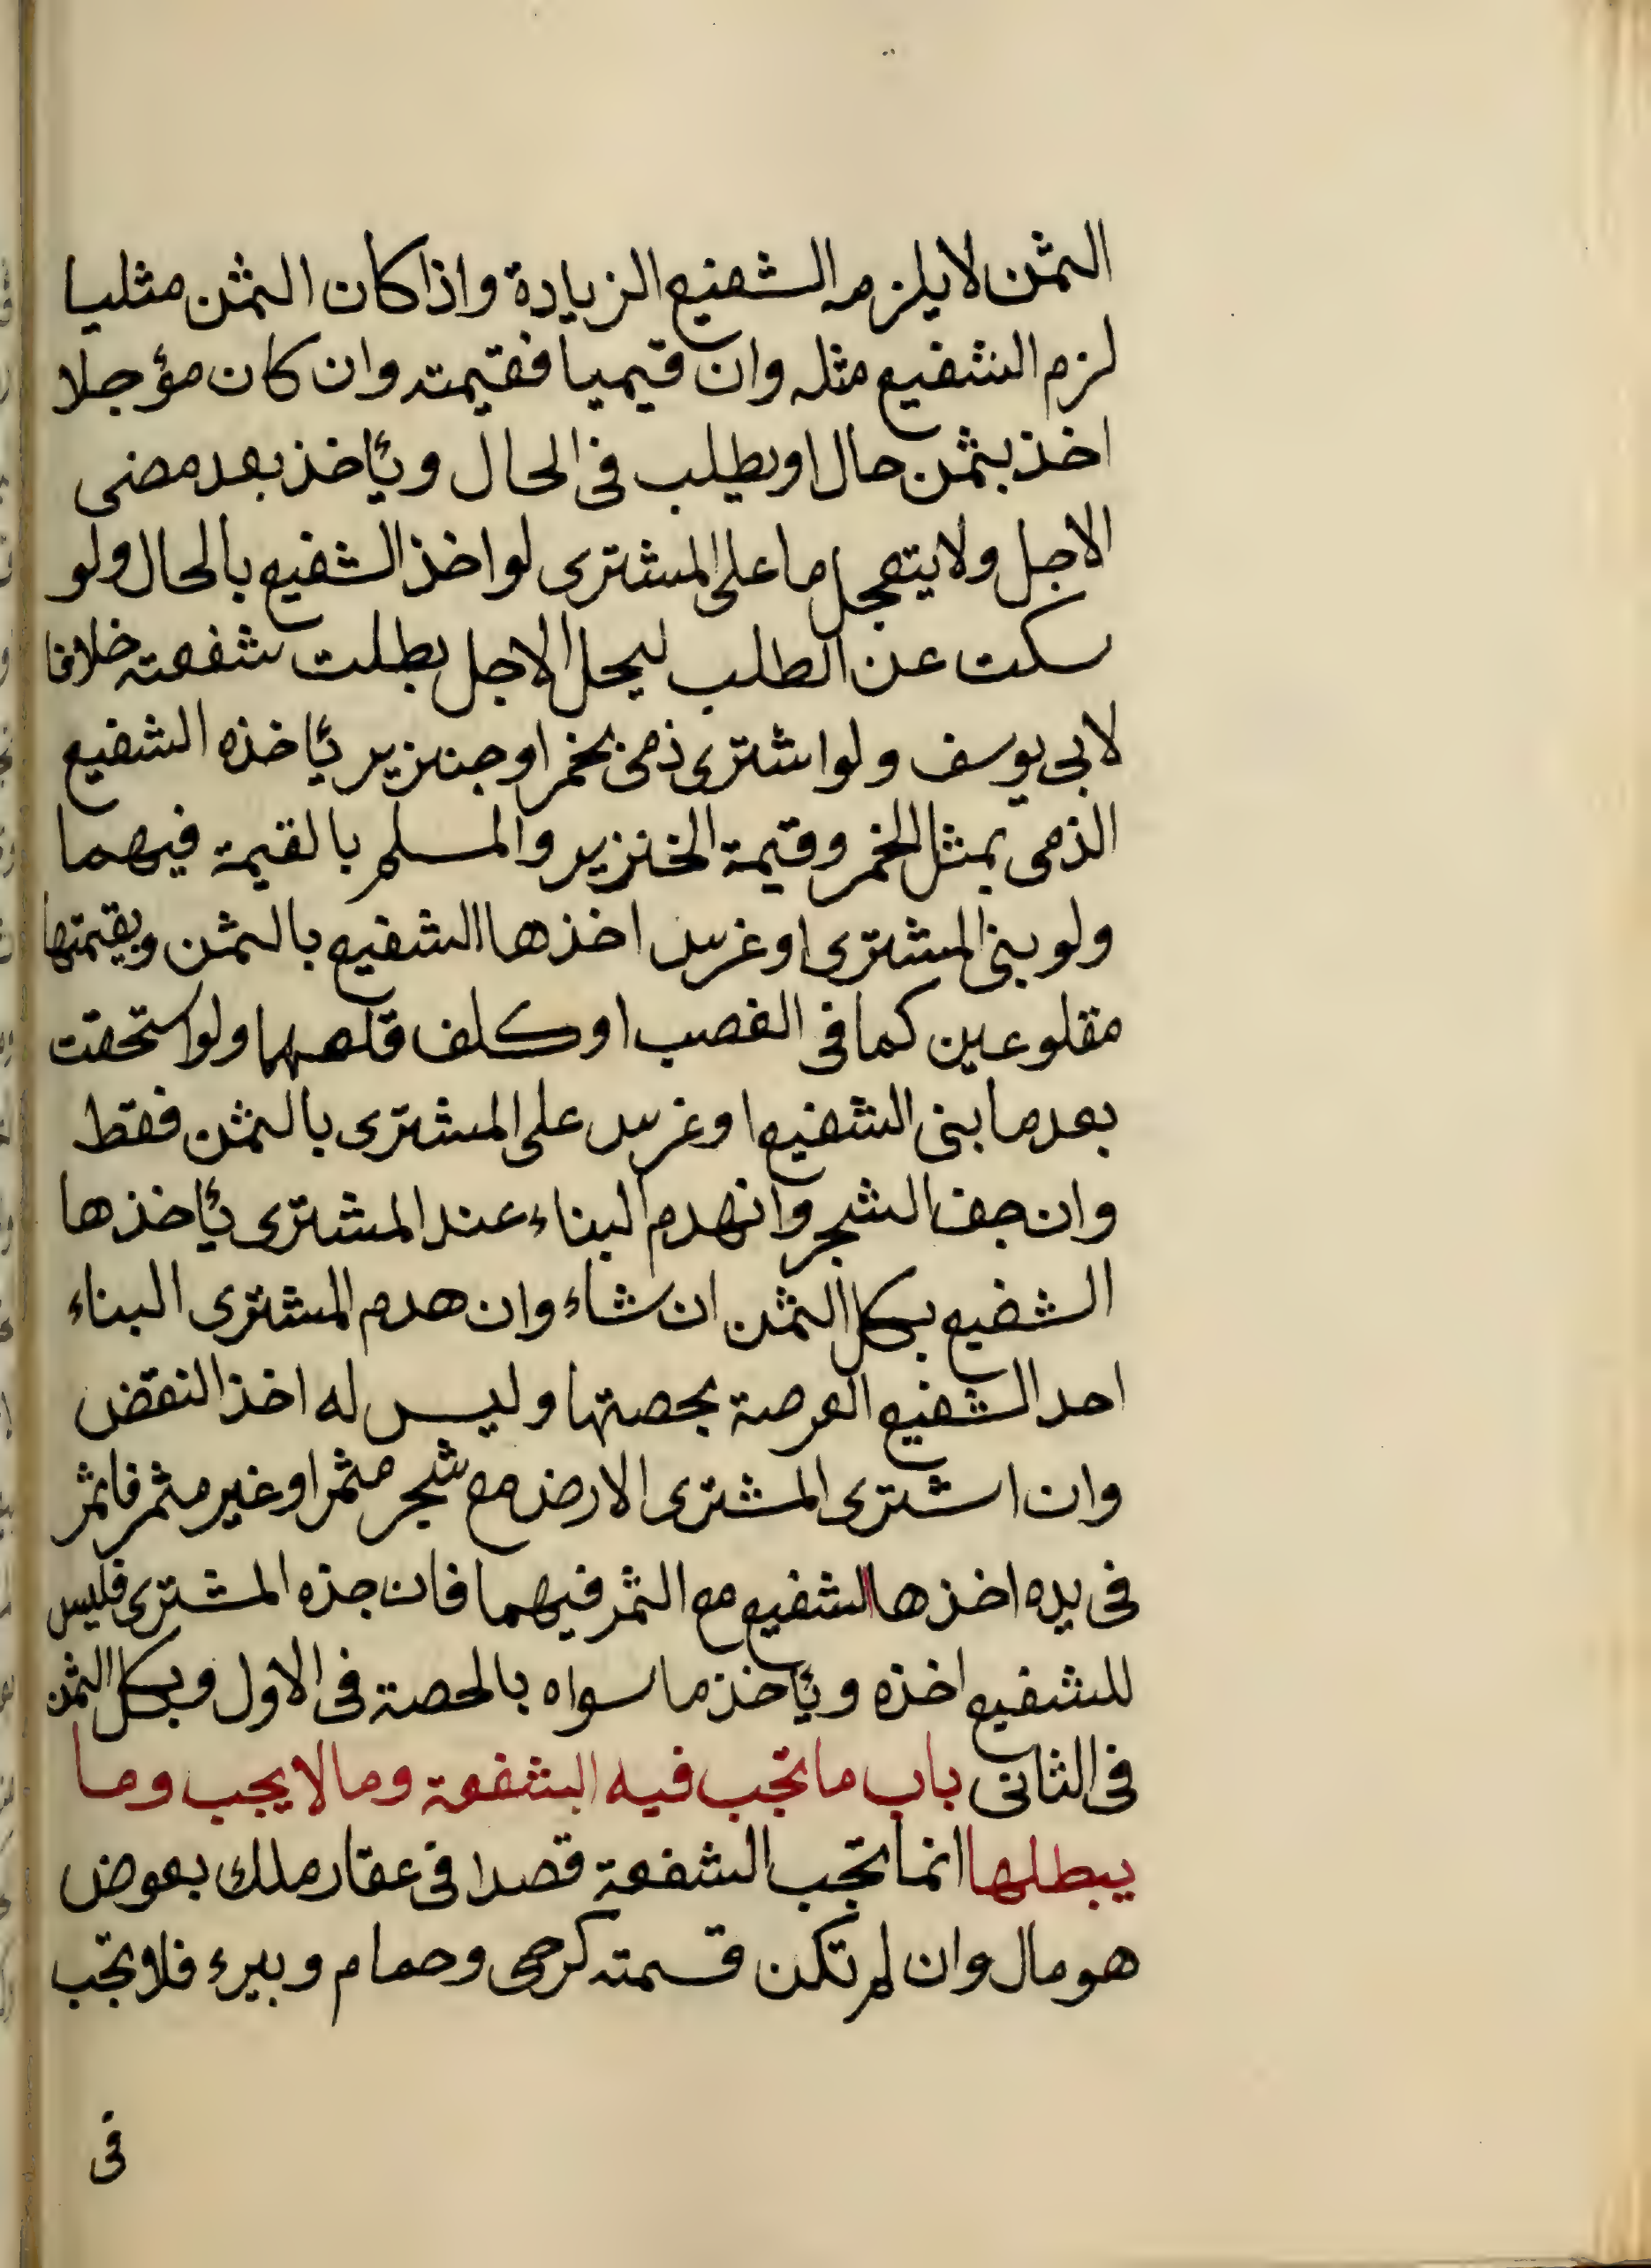 الثمن لا يلزمه الشفيع الزيادة واذا كان الثمن مثليا
لزم الشفيع مثله وان قيميا فقيمته وان كان مؤجلا
اخذ بثمن حال او يطلب فى الحال ويأخذ بعد مضى
الاجل ولا يتعجل ما على المشترى لو اخذ الشفيع بالحال ولو
سكت عن الطلب ليحل الاجل بطلت شفعته خلافا
لابى يوسف ولو اشترى ذمى بخمر او جنزير يأخذه الشفيع
الذمى بمثل الخمر وقيمة الخنزير والمسلم بالقيمة فيهما
ولو بنى المشترى او غرس اخذها الشفيع بالثمن وبقيمتها
مقلوعين كما فى الغصب او كلف قلعهما ولو استحقت
بعد ما بنى الشفيع او غرس على المشترى بالثمن فقط
وان جف الشجر وانهدم البناء عند المشترى يأخذها
الشفيع بكل الثمن ان شاء وان هدم المشترى البناء
احد الشفيع العرصة بحصتها وليس له اخذ النقض
وان اشترى المشترى الارض مع شجر مثمر او غير مثمر فاثمر
فى يده اخذها الشفيع مع الثمر فيهما فان جذه المشترى فليس
للشفيع اخذه ويأخذ ما سواه بالحصة فى الاول وبكل الثمن
فى الثانى باب ما تجب فيه الشفعة وما لا يجب وما
يبطلها انما تجب الشفعة قصدا فى عقار ملك بعوض
هو مال وان لم تكن قسمته كرحى وحمام وبيرء فلا تجب
فى